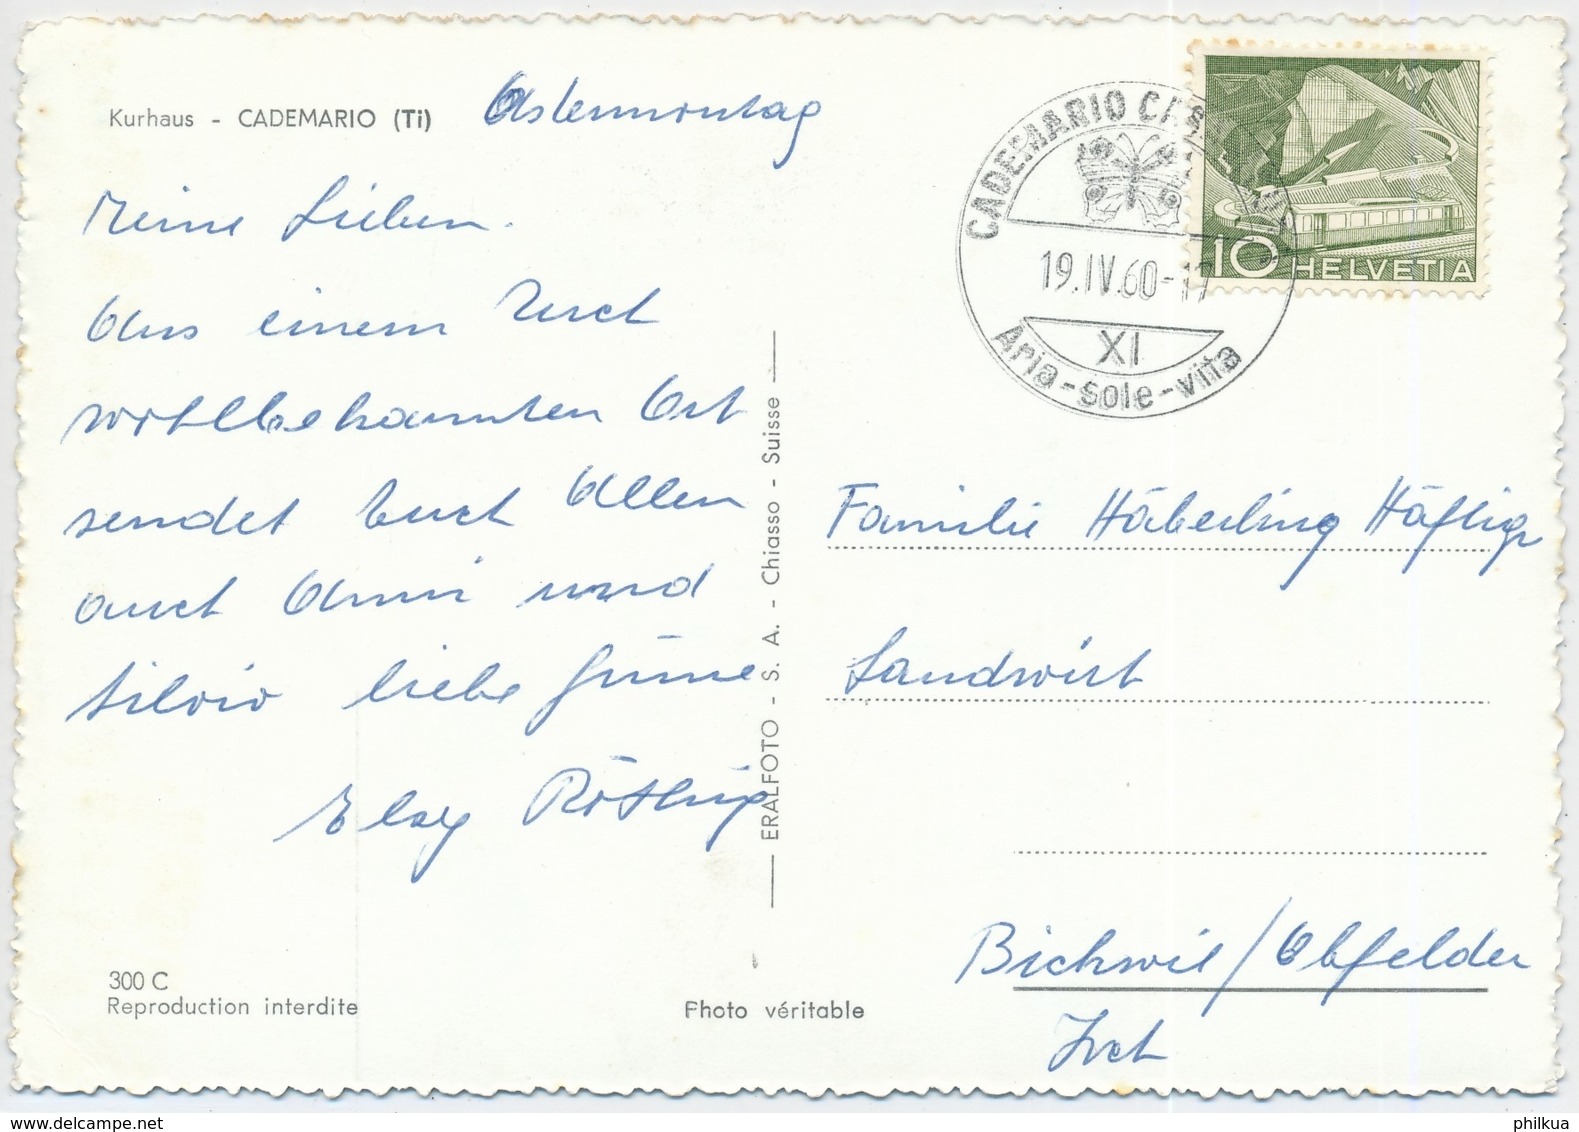 Kurhaus - CADEMARIO (Ti)
Ostermontag
Meine Lieben.
Aus einem Euch
wohlbekannten Ort
sendet Euch Allen
auch Anni und
Silvio liebe Grüsse
Elsy Röthlig
ERALFOTO - S. A. - Chiasso - Suisse
300 C
Reproduction interdite
Photo véritable
CADEMARIO CAS
19.IV.60-17
XI
Aria-sole-vita
10 HELVETIA
Familie Häberling Häflig
Landwirt
Bickwil/Obfelden
Zch
www.delcampe.net
philkua